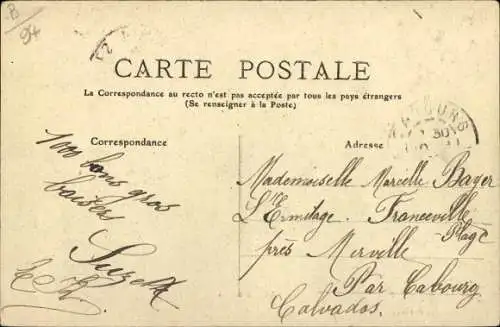 B
94
CARTE POSTALE
La Correspondance au recto n'est pas acceptée par tous les pays étrangers
(Se renseigner à la Poste)
Correspondance
1000 bons gros
baisers
Suzette
Adresse
Mademoiselle Marcelle Bayer
L'Ermitage. Franceville
Plage
près Merville
Par Cabourg
Calvados.